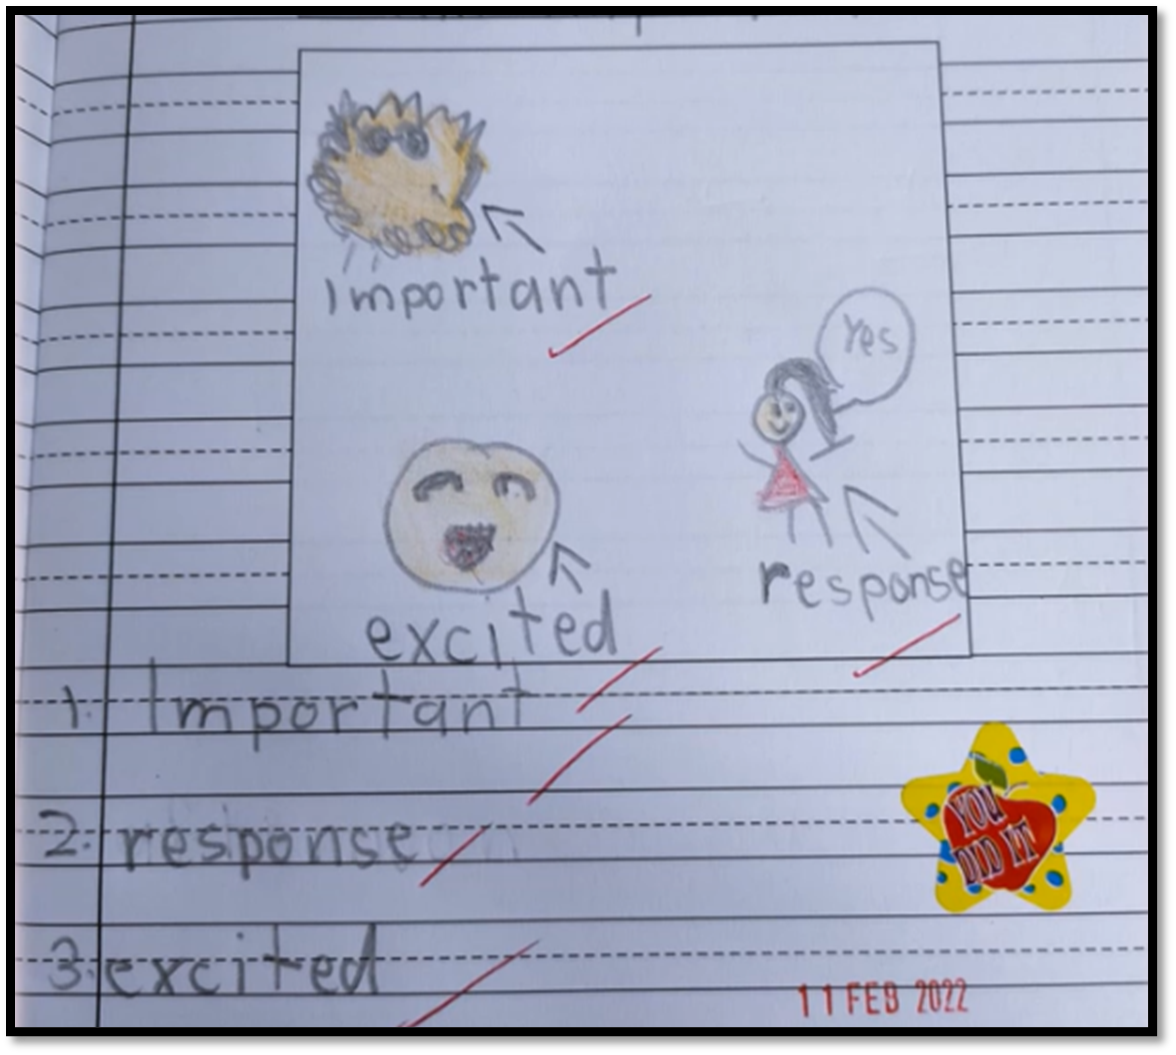 Important
Yes
response
excited
1. Important
2. response
3. excited
YOU
DID IT
11 FEB 2022